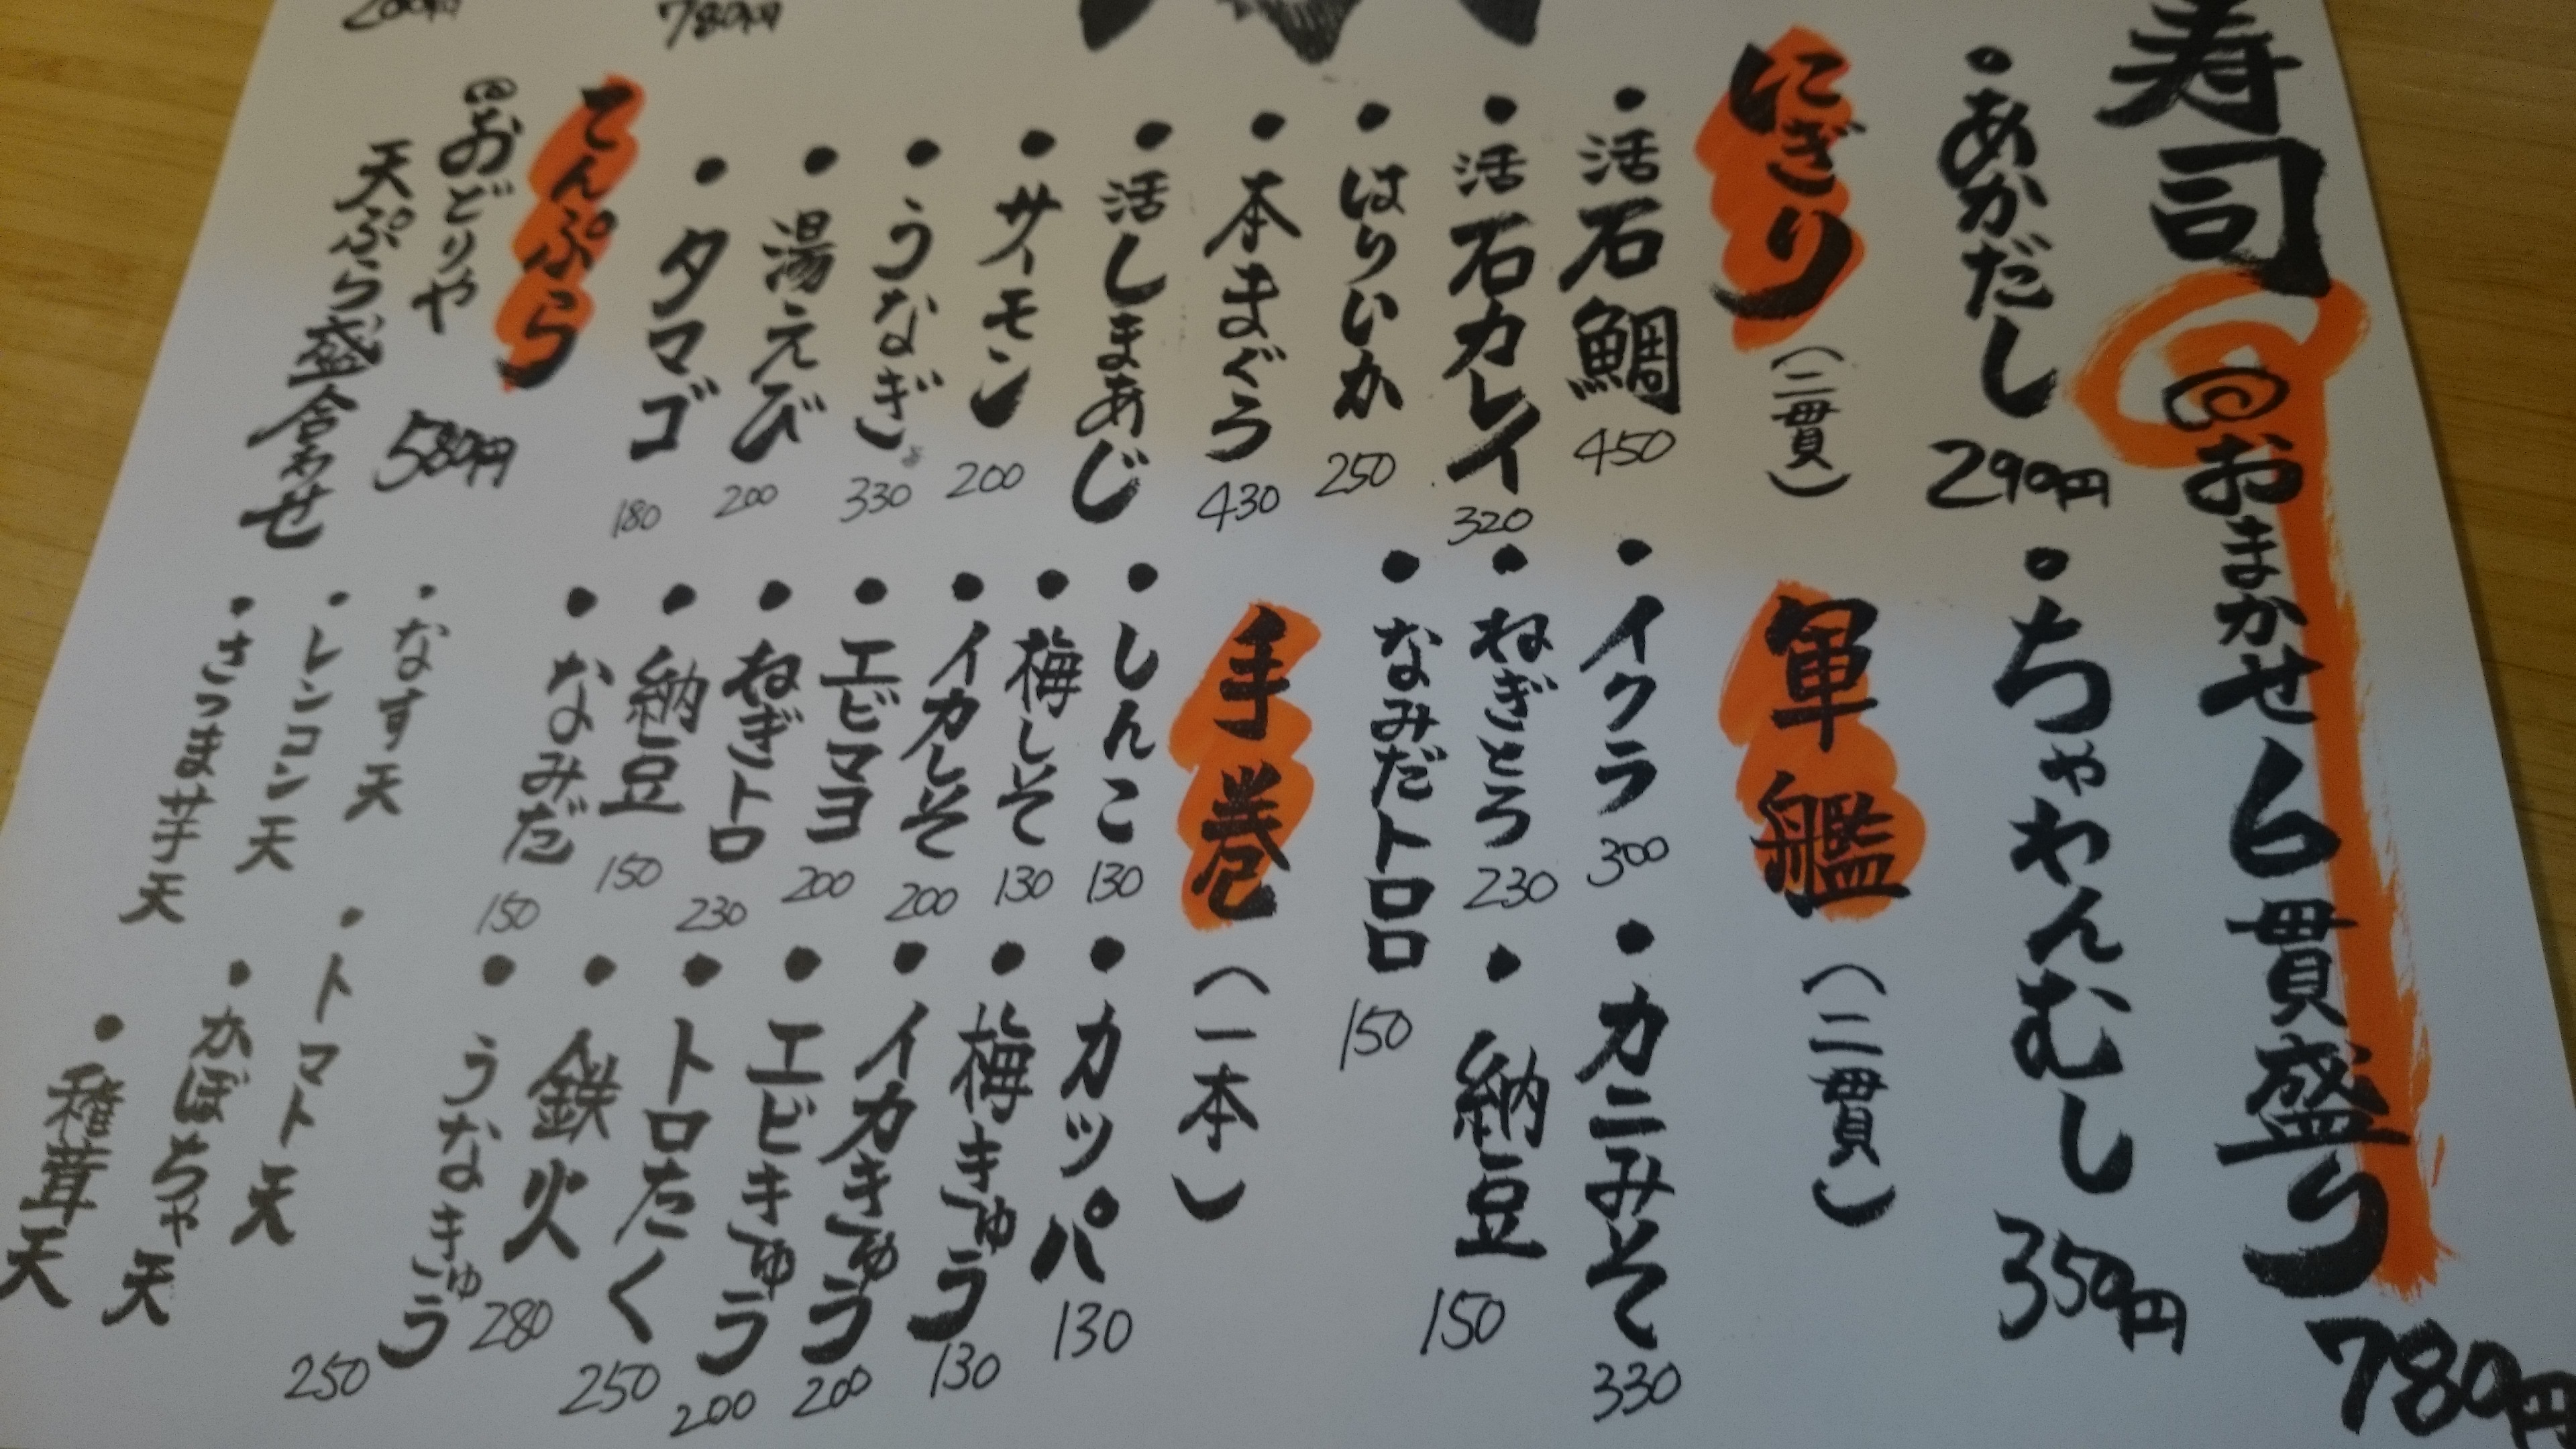 寿司
おまかせ6貫盛り 780円
・あかだし 290円
・ちゃわんむし 350円
にぎり(二貫)
・活石鯛 450
・活石カレイ 320
・はりいか 250
・本まぐろ 430
・活しまあじ
・サーモン 200
・うなぎ 330
・湯えび 200
・タマゴ 180
軍艦(二貫)
・イクラ 300
・カニみそ 330
・ねぎとろ 230
・納豆 150
・なみだトロロ 150
手巻(一本)
・しんこ 130
・カッパ 130
・梅しそ 130
・梅きゅう 130
・イカしそ 200
・イカきゅう 200
・エビマヨ 200
・エビきゅう 200
・ねぎトロ 230
・トロたく 250
・納豆 150
・鉄火 280
・なみだ 150
・うなきゅう 250
てんぷら
おどりや
天ぷら盛合わせ 580円
・なす天
・トマト天
・レンコン天
・かぼちゃ天
・さつま芋天
・椎茸天
780円